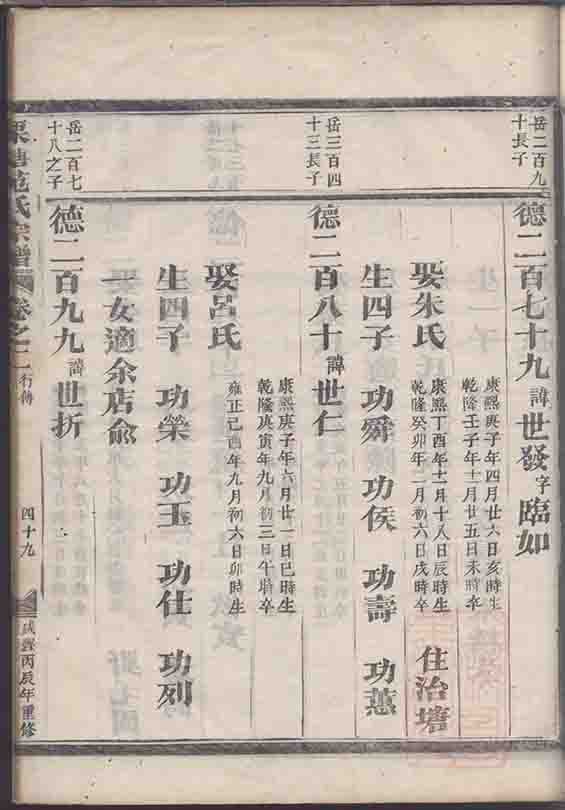 岳二百九
十長子
德二百七十九 諱世發 字臨如
康熙庚子年四月廿六日亥時生
乾隆壬子年十一月廿五日未時卒
娶朱氏
康熙丁酉年十一月十八日辰時生
乾隆癸卯年二月初六日戌時卒
住治塘
生四子 功舜 功侯 功壽 功蕙
岳二百四
十三長子
德二百八十 諱世仁
康熙庚子年六月廿一日巳時生
乾隆庚寅年九月初三日午時卒
娶呂氏
雍正己酉年九月初六日卯時生
生四子 功榮 功玉 功仕 功列
一女適余店俞
岳二百七
十八之子
德二百九九 諱世折
范氏宗譜 卷之二 行傳
四十九
咸豐丙辰年重修